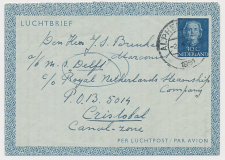 LUCHTBRIEF
Den Heer J. S. Breuke
Marconi
a/b m.s. Delft
c/o Royal Netherlands Steamship
Company
P.O.B. 5014
Cristobal
Canal-zone
NEDERLAND
PER LUCHTPOST / PAR AVION